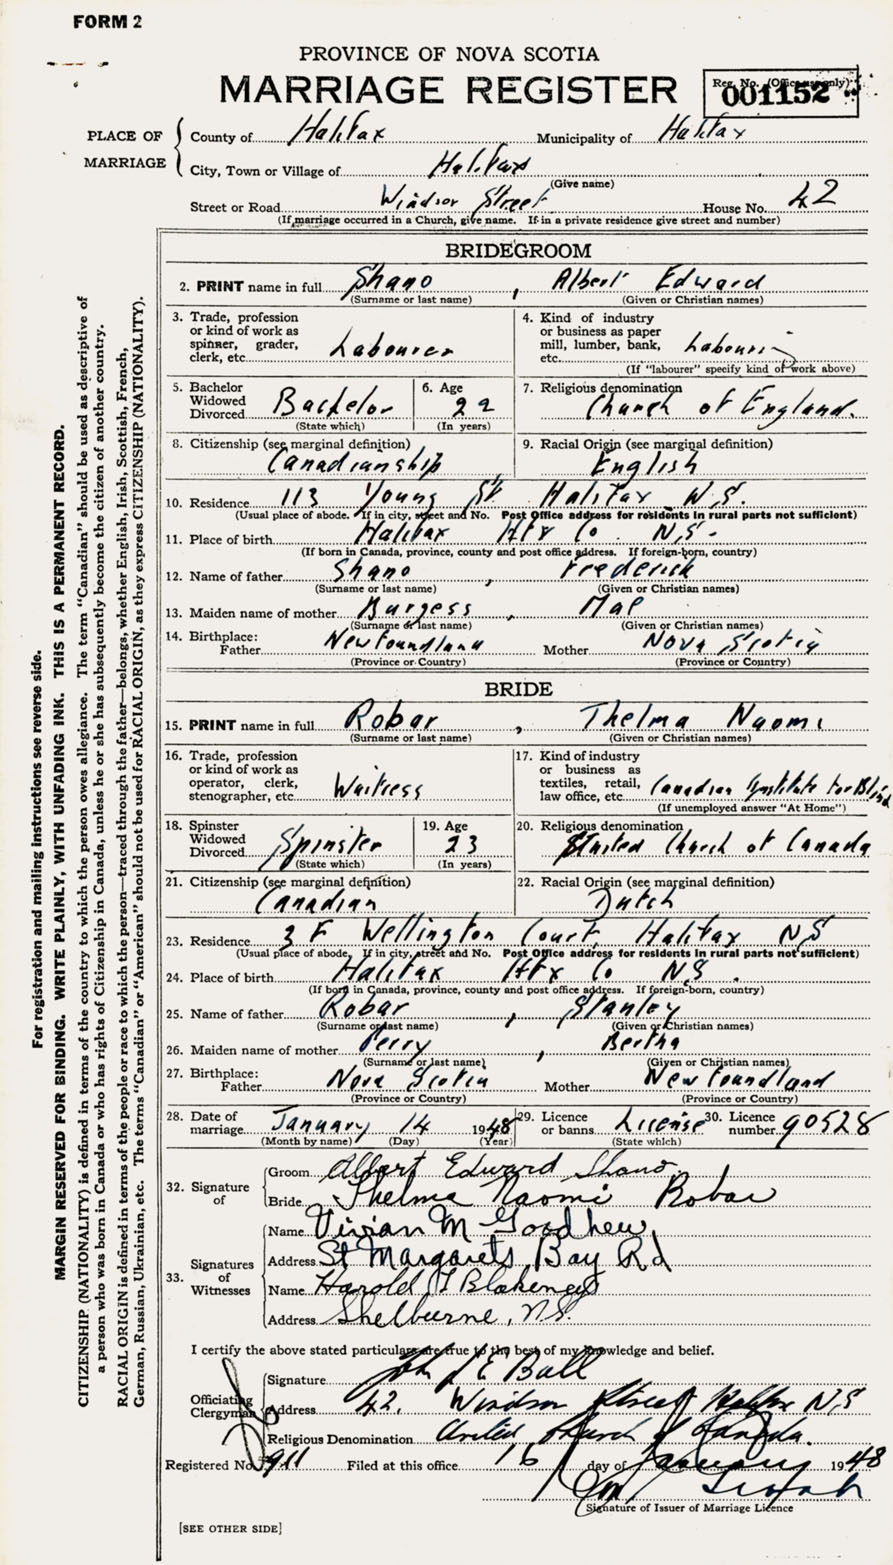 FORM 2
PROVINCE OF NOVA SCOTIA
MARRIAGE REGISTER
Reg. No. (Office use only)
001152
PLACE OF MARRIAGE
County of Halifax Municipality of Halifax
City, Town or Village of Halifax
(Give name)
Street or Road Windsor Street House No. 42
(If marriage occurred in a Church, give name. If in a private residence give street and number)
BRIDEGROOM
2. PRINT name in full Shano, Albert Edward
(Surname or last name) (Given or Christian names)
3. Trade, profession or kind of work as spinner, grader, clerk, etc. Labourer
4. Kind of industry or business as paper mill, lumber, bank, etc. Labouring
(If "labourer" specify kind of work above)
5. Bachelor Widowed Divorced Bachelor
(State which)
6. Age 22
(In years)
7. Religious denomination Church of England.
8. Citizenship (see marginal definition)
Canadianship
9. Racial Origin (see marginal definition)
English
10. Residence 113 Young St Halifax N.S.
(Usual place of abode. If in city, street and No. Post Office address for residents in rural parts not sufficient)
11. Place of birth Halifax Hfx Co. N.S.
(If born in Canada, province, county and post office address. If foreign-born, country)
12. Name of father Shano, Frederick
(Surname or last name) (Given or Christian names)
13. Maiden name of mother Burgess, Mae
(Surname or last name) (Given or Christian names)
14. Birthplace: Father Newfoundland Mother Nova Scotia
(Province or Country) (Province or Country)
BRIDE
15. PRINT name in full Robar, Thelma Naomi
(Surname or last name) (Given or Christian names)
16. Trade, profession or kind of work as operator, clerk, stenographer, etc. Waitress
17. Kind of industry or business as textiles, retail, law office, etc. Canadian Institute For Blind
(If unemployed answer "At Home")
18. Spinster Widowed Divorced Spinster
(State which)
19. Age 23
(In years)
20. Religious denomination
United Church of Canada
21. Citizenship (see marginal definition)
Canadian
22. Racial Origin (see marginal definition)
Dutch
23. Residence 3 F Wellington Court, Halifax N.S
(Usual place of abode. If in city, street and No. Post Office address for residents in rural parts not sufficient)
24. Place of birth Halifax Hfx Co N.S.
(If born in Canada, province, county and post office address. If foreign-born, country)
25. Name of father Robar, Stanley
(Surname or last name) (Given or Christian names)
26. Maiden name of mother Perry, Bertha
(Surname or last name) (Given or Christian names)
27. Birthplace: Father Nova Scotia Mother Newfoundland
(Province or Country) (Province or Country)
28. Date of marriage January 14 1948
(Month by name) (Day) (Year)
29. Licence or banns License
(State which)
30. Licence number 90528
32. Signature of
Groom Albert Edward Shano.
Bride Thelma Naomi Robar
33. Signatures of Witnesses
Name Vivian M Goodhew
Address St Margarets Bay Rd
Name Harold Blakeney
Address Shelburne, N.S.
I certify the above stated particulars are true to the best of my knowledge and belief.
Officiating Clergyman
Signature John E Ball
Address 42, Windsor Street Halifax N.S
Religious Denomination United Church of Canada.
Registered No. 911 Filed at this office 16 day of January 1948
Signature of Issuer of Marriage Licence
[SEE OTHER SIDE]
For registration and mailing instructions see reverse side.
MARGIN RESERVED FOR BINDING. WRITE PLAINLY, WITH UNFADING INK. THIS IS A PERMANENT RECORD.
CITIZENSHIP (NATIONALITY) is defined in terms of the country to which the person owes allegiance. The term "Canadian" should be used as descriptive of
a person who was born in Canada or who has rights of Citizenship in Canada, unless he or she has subsequently become the citizen of another country.
RACIAL ORIGIN is defined in terms of the people or race to which the person—traced through the father—belongs, whether English, Irish, Scottish, French,
German, Russian, Ukrainian, etc. The terms "Canadian" or "American" should not be used for RACIAL ORIGIN, as they express CITIZENSHIP (NATIONALITY).